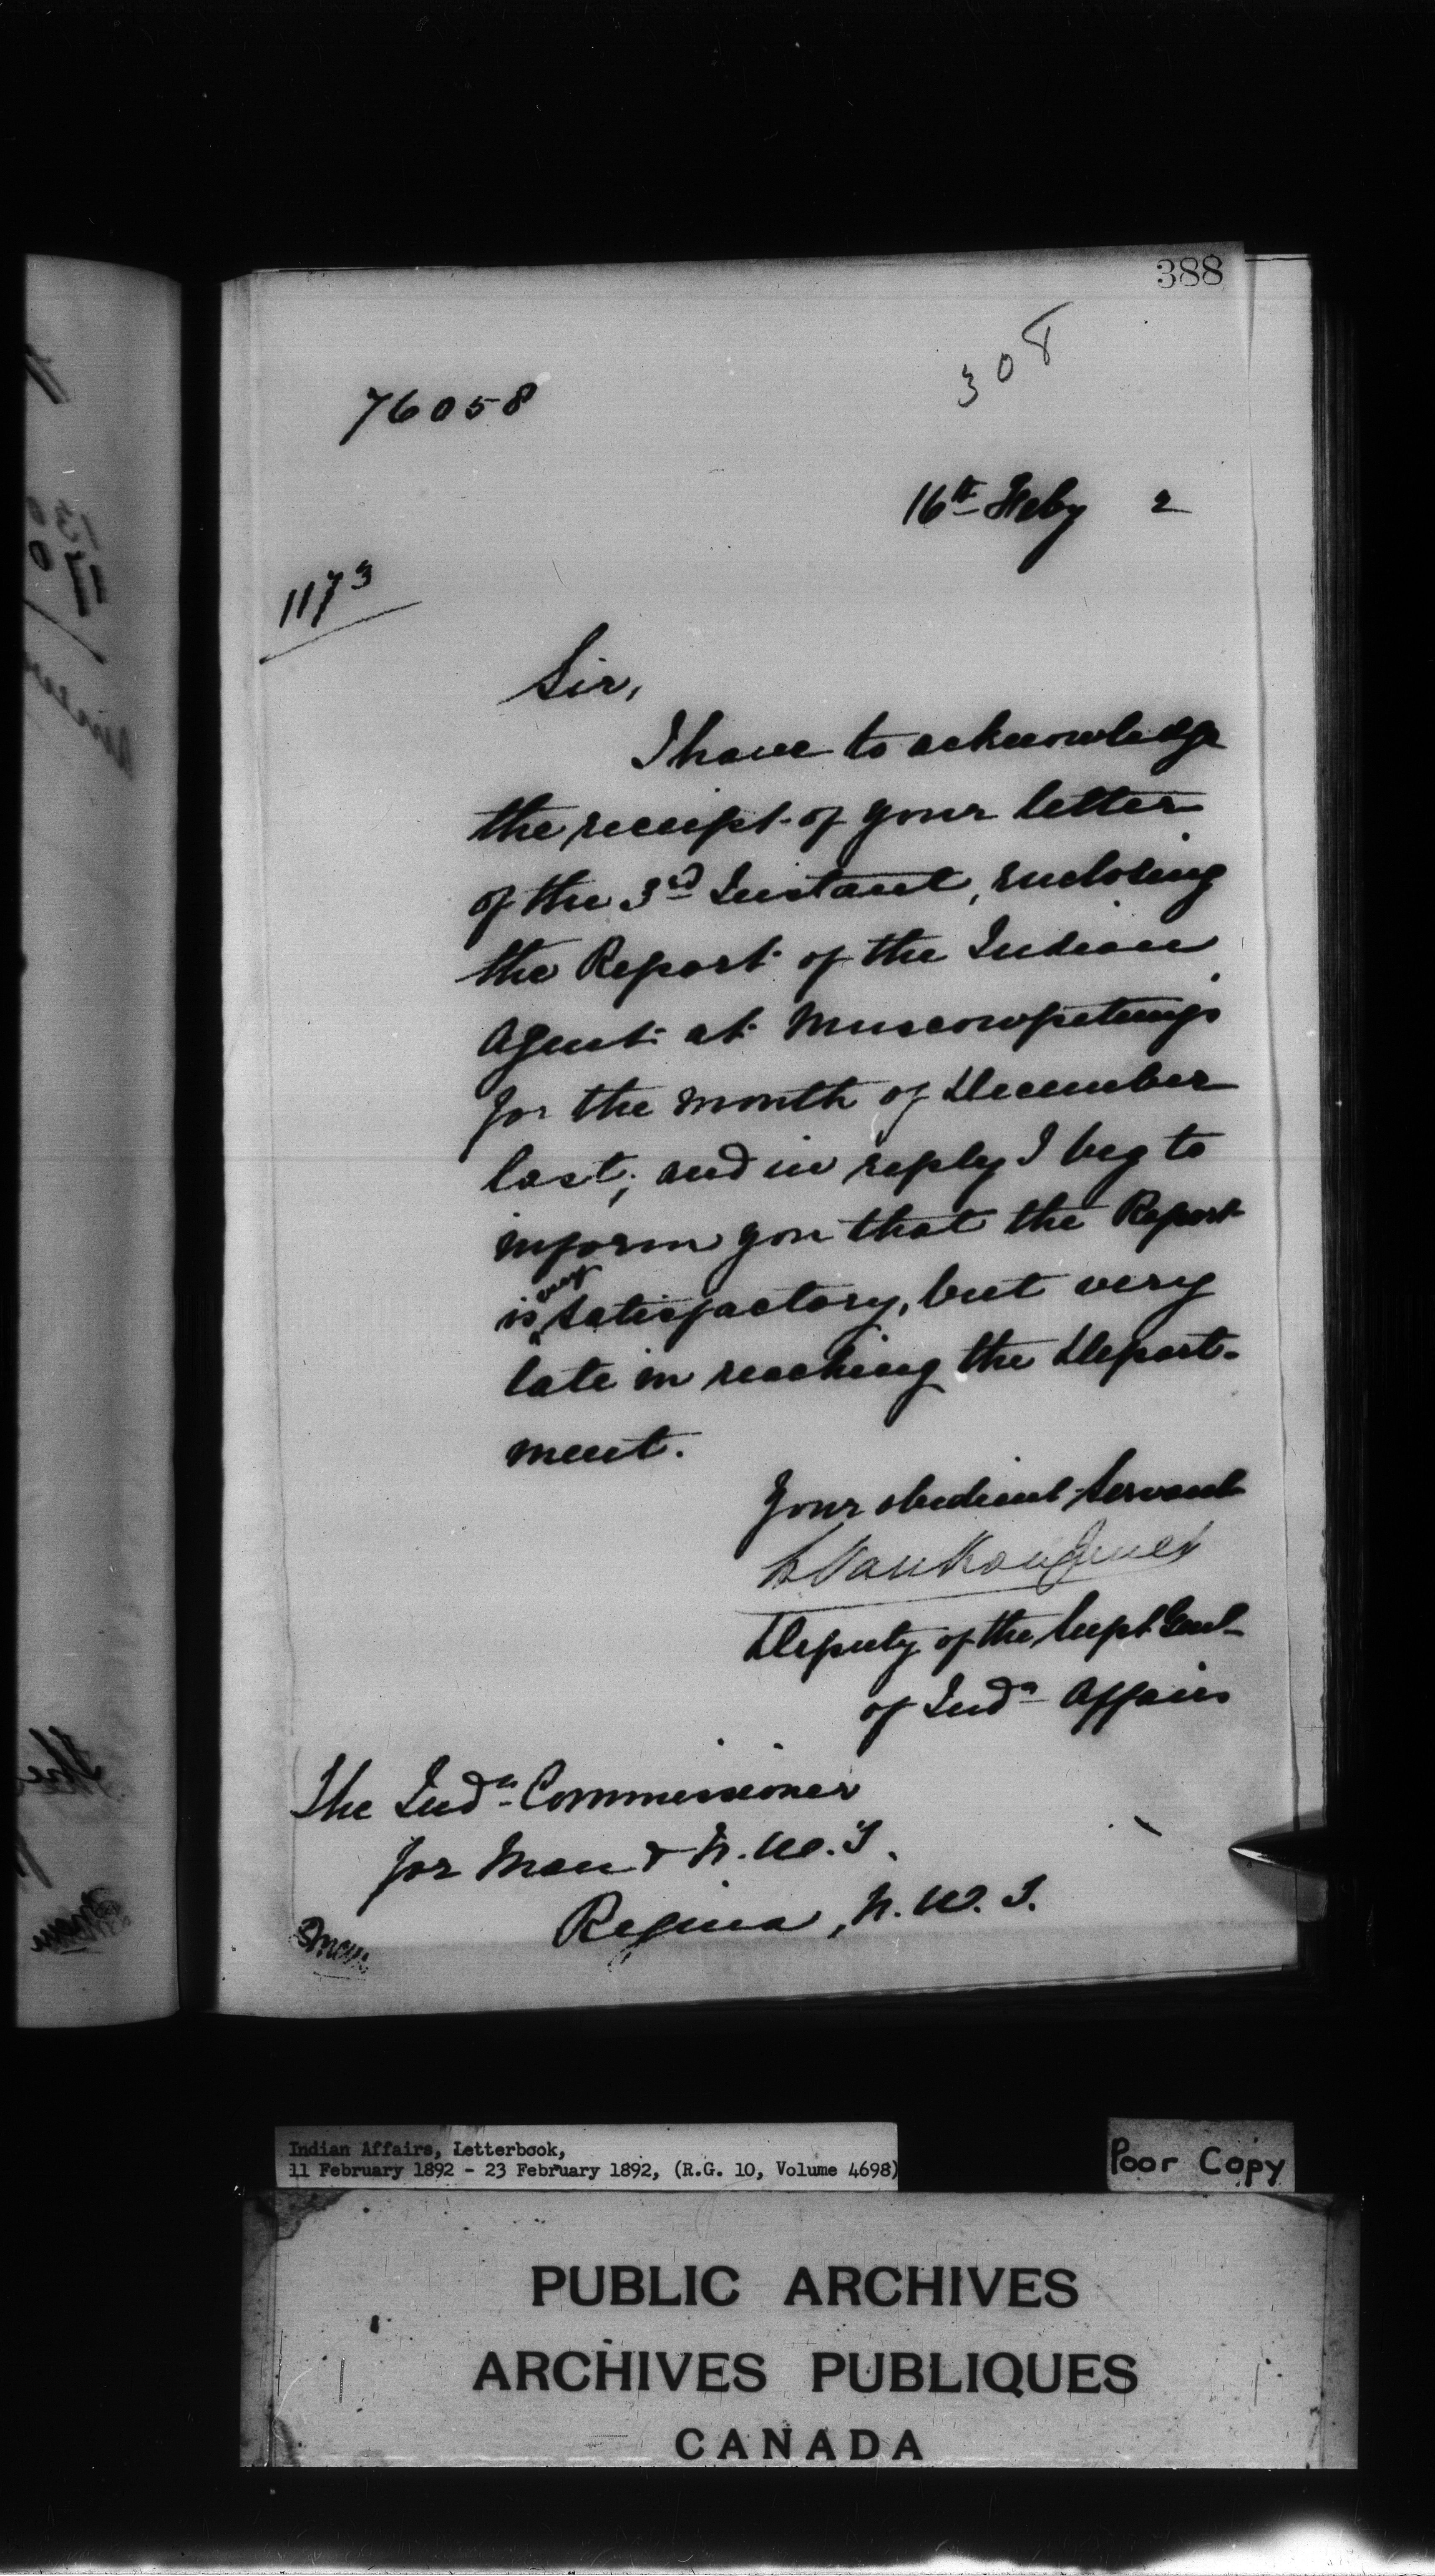 388
308
76058
16th Feby 2
1173
Sir,
I have to acknowledge
the receipt of your letter
of the 3rd Instant, enclosing
the Report of the Indian
Agent at Muscowpetung's
for the month of December
last; and in reply I beg to
inform you that the Report
is very satisfactory, but very
late in reaching the Depart-
ment.
Your obedient Servant
L Vankoughnet
Deputy of the Supt Genl
of Indn Affairs
The Indn Commissioner
for Man & N.W.T.
Regina, N.W.T.
Indian Affairs, Letterbook,
11 February 1892 - 23 February 1892, (R.G. 10, Volume 4698)
Poor Copy
PUBLIC ARCHIVES
ARCHIVES PUBLIQUES
CANADA